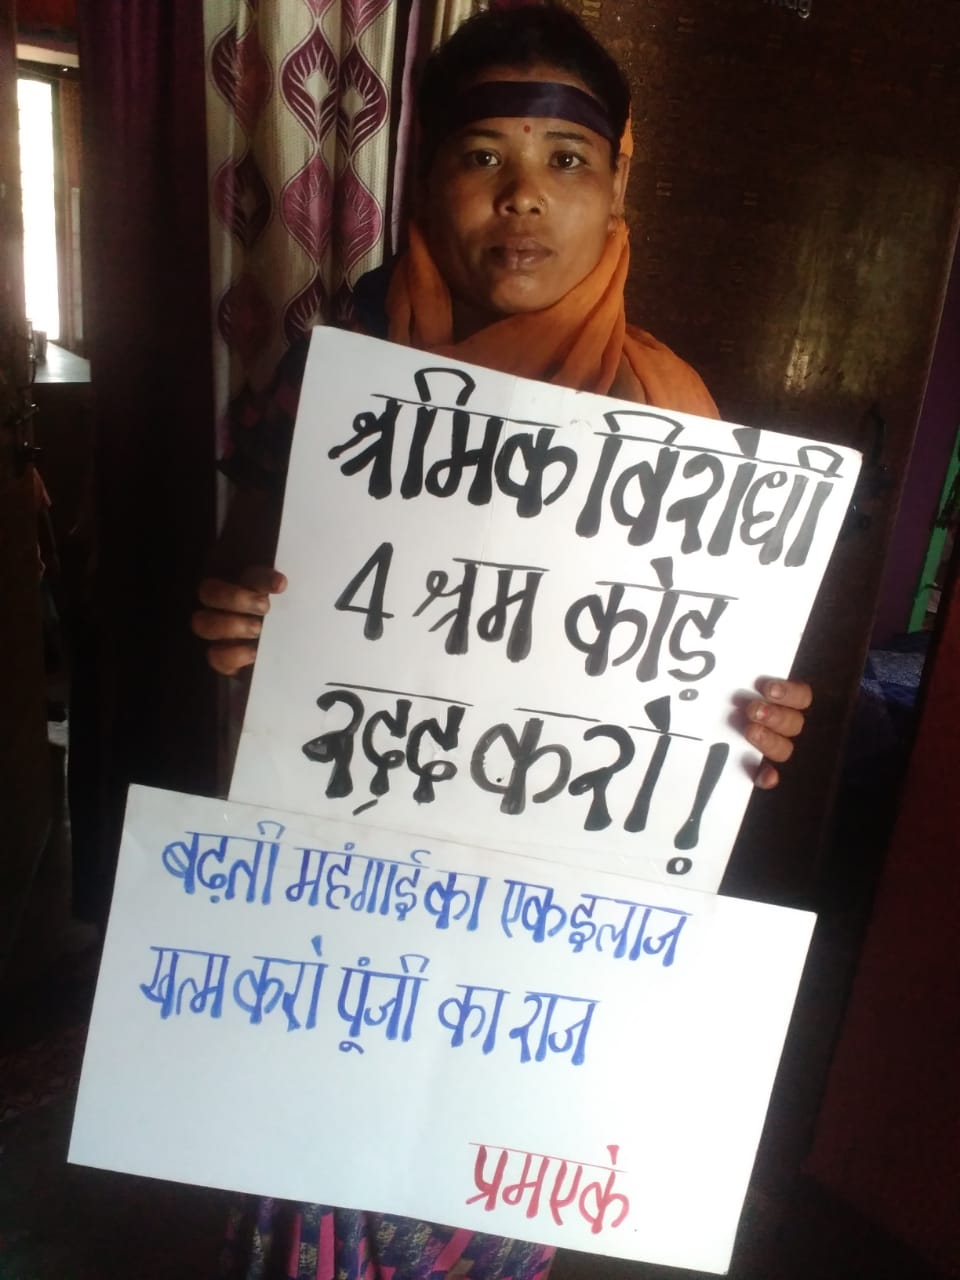 श्रमिक विरोधी
4 श्रम कोड़
रद्द करो!
बढ़ती महंगाई का एक इलाज
खत्म करो पूंजी का राज
प्रमएके